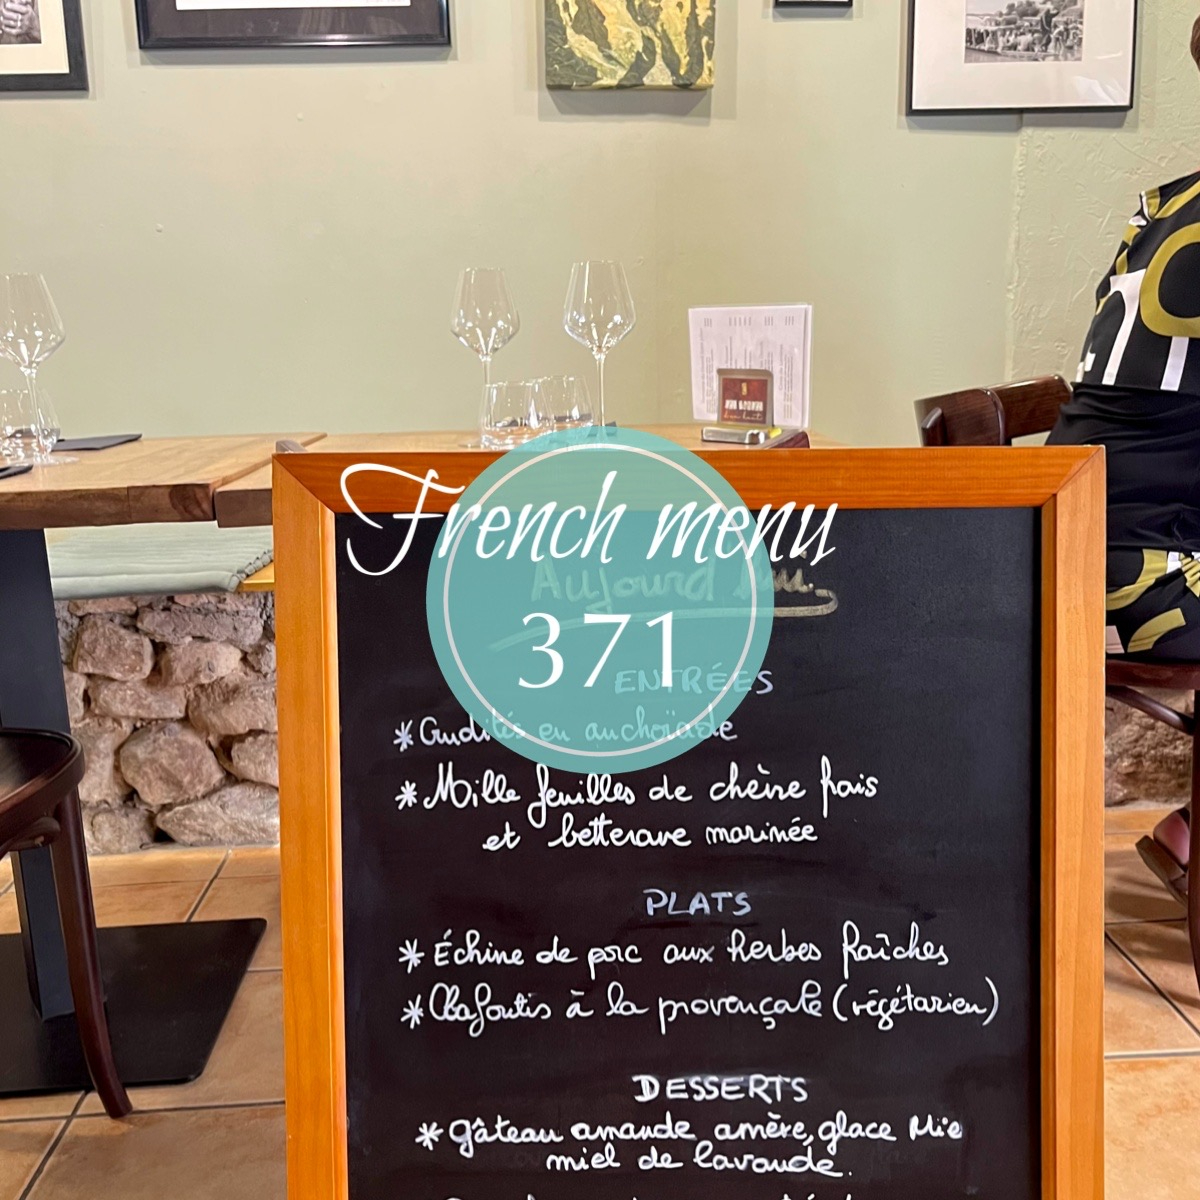 French menu
Aujourd'hui.
371
ENTRÉES
* Crudités en anchoïade
* Mille feuilles de chèvre frais
et betterave marinée
PLATS
* Échine de porc aux herbes fraîches
* Clafoutis à la provençale (végétarien)
DESSERTS
* gâteau amande amère, glace
miel de lavande.